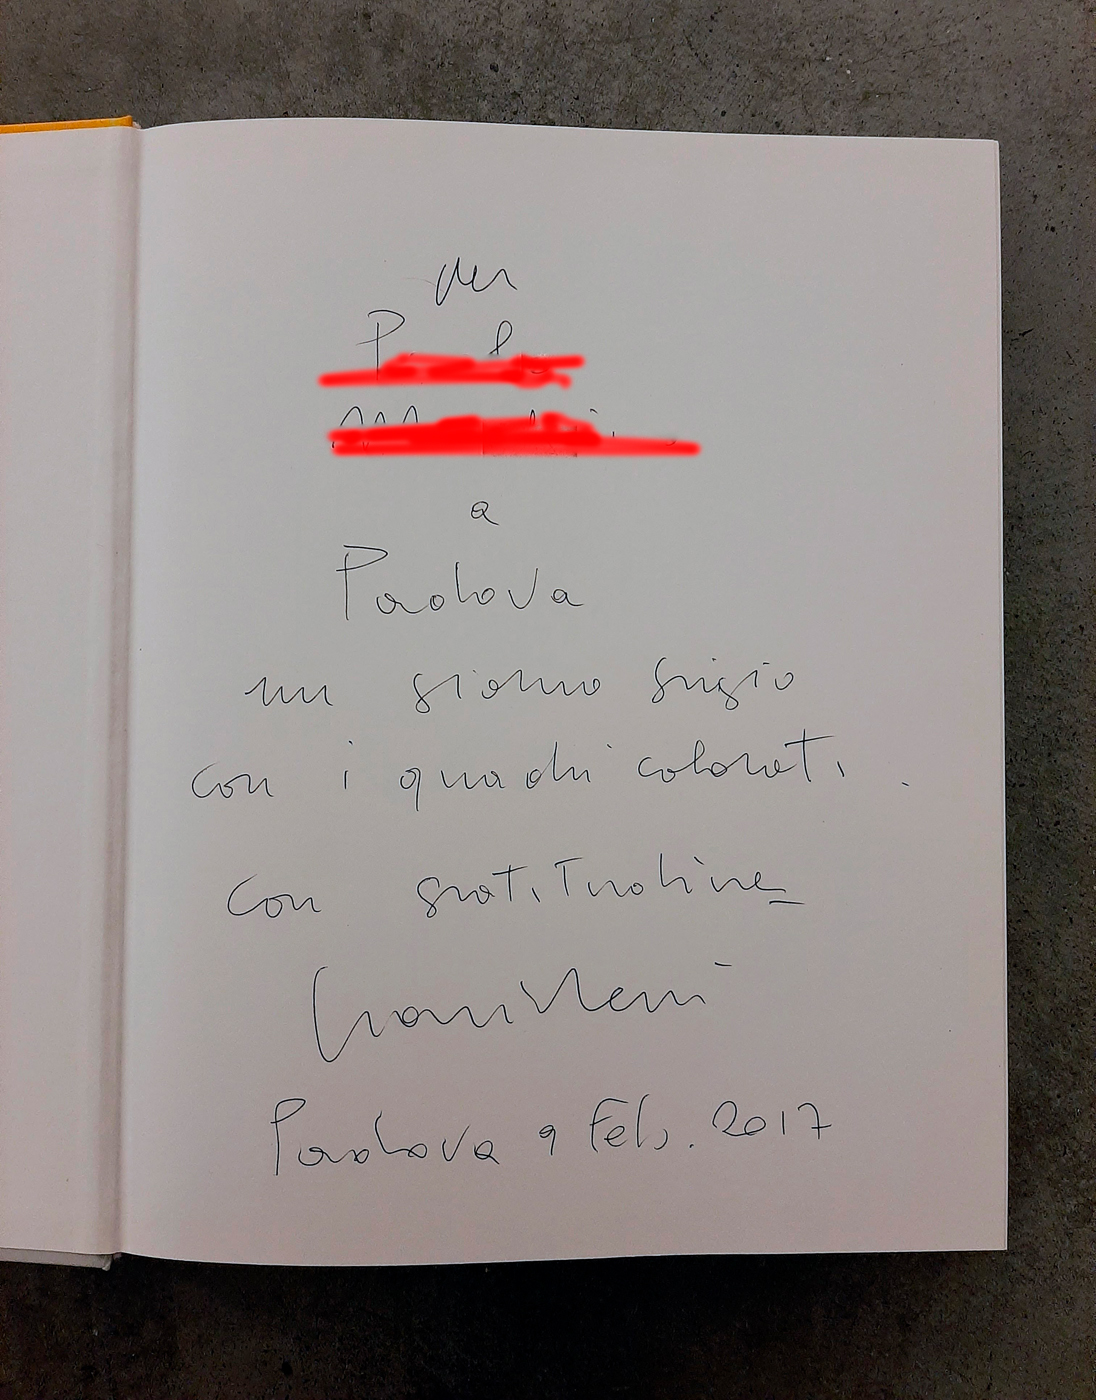 per
a
Padova
un giorno grigio
con i quadri colorati.
con gratitudine
Padova 9 Feb. 2017